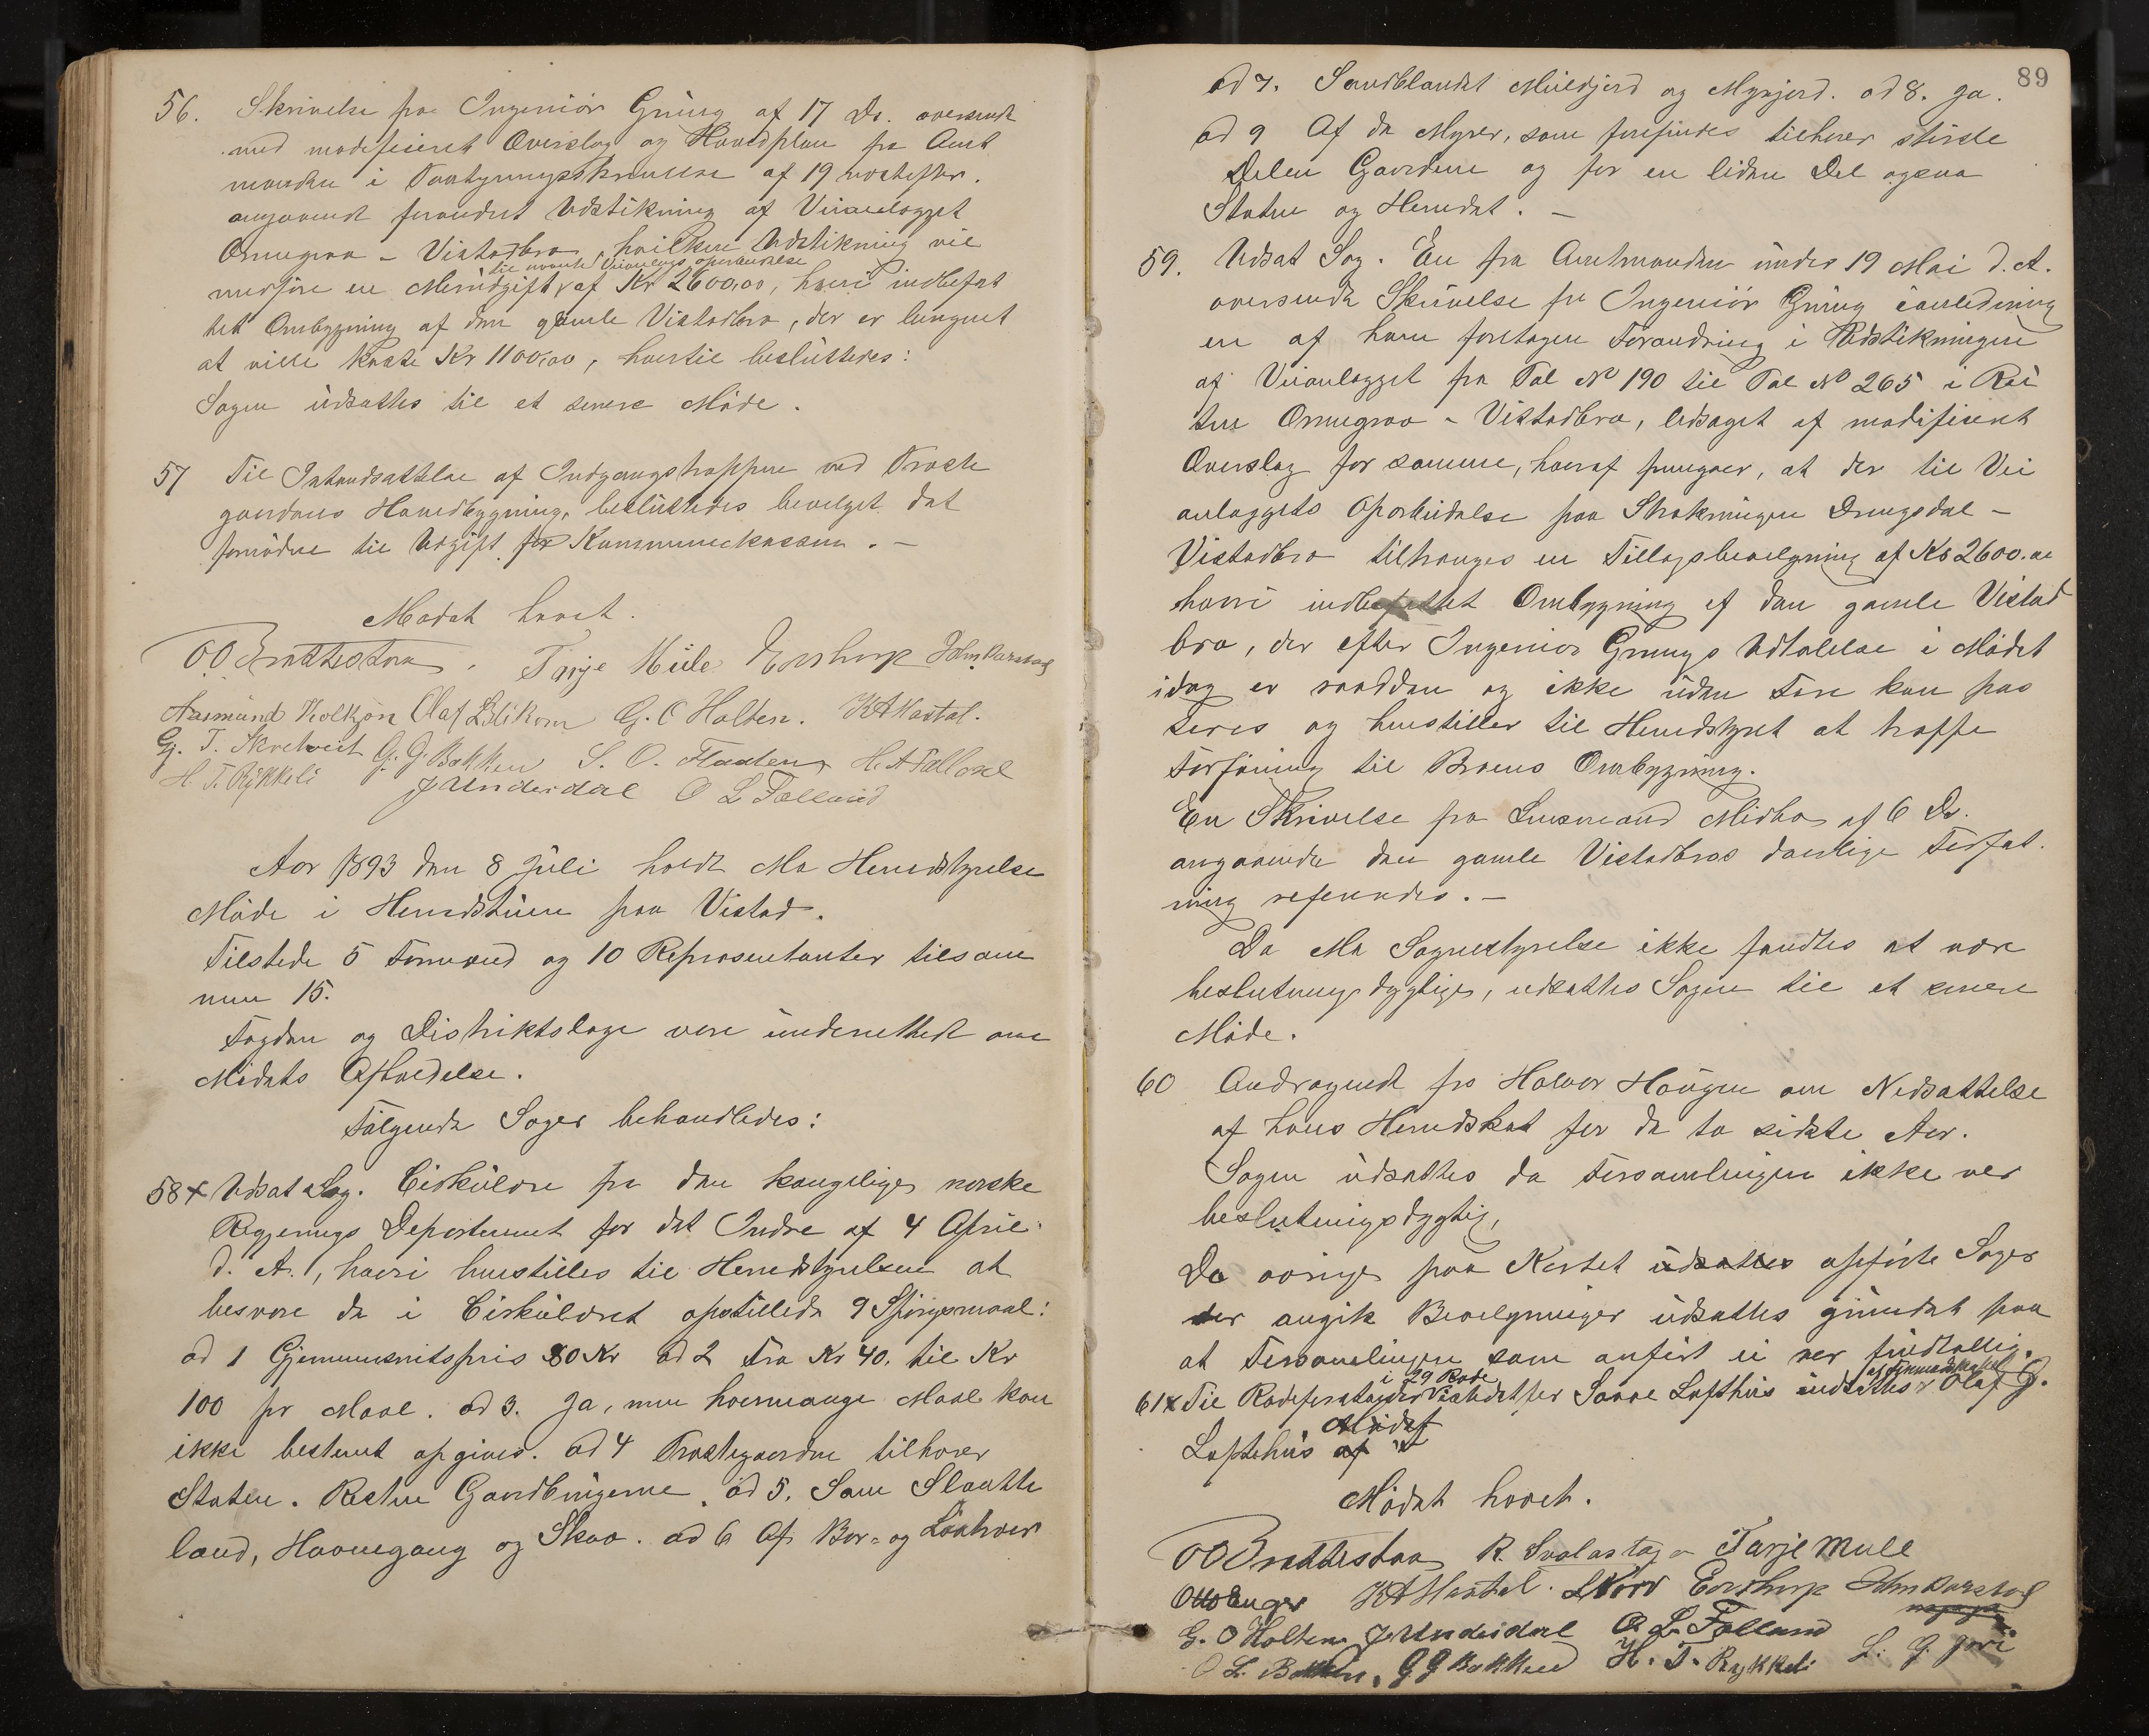 56. Skrivelse fra Ingeniör Gring af 17 Ds. oversendt
med modificeret Overslag og Hovedplan fra Amt
manden i Paategningsskrivelse af 19 næstefter.
angaaende forandret Udstikning af Veianlægget
Ormegraa - Vistadbro, hvilken Udstikning vil
til nævnte Veianlægs oparbeidelse
medføre en Merudgift af Kr 2600,00, heri indbefat
tet Ombygning af den gamle Vistadbro, der er beregnet
at ville koste Kr 1100,00, hvortil besluttedes:
Sagen udsættes til et senere Möde.
57 Til Istandsættelse af Indgangstrappen ved Præste
gaardens Hovedbygning, besluttedes bevilget det
fornödne til Udgift for Kommunekassen. -
Mödet hævet.
O O Brattestaa. Tarje Mule Eershup John Darstad
Aasmund Kolkjøn Olaf G. O Holten. K A Nastal.
G. T. Skretveit G. G Bakken S. O. Flaaten H. A Tallexel
H. T. Rykkeli J Underdal O L Folland
Aar 1893 den 8 Juli holdt Mo Herredstyrelse
Möde i Herredstuen paa Vistad.
Tilstede 5 Formænd og 10 Repræsentanter tilsam
men 15.
Fogden og Distriktslæge vare underrettet om
Mödets Afholdelse.
Fölgende Sager behandledes:
58 x Udsat Sag. Cirkulære fra den kongelige norske
Regjerings Departement for det Indre af 4 April
d. A., hvori henstilles til Herredstyrelsen at
besvare de i Cirkulæret opstillede 9 Spörgsmaal:
ad 1 Gjennemsnitspris 80 Kr ad 2 Fra Kr 40. til Kr
100 pr Maal. ad 3. Ja, men hvormange Maal kan
ikke bestemt opgives. ad 4 Præstegaarden tilhører
Staten. Resten Gaardbrugerne. ad 5. Som Slaatte
land, Havnegang og Skov. ad 6 Af Bar- og Lövtræer
89
ad 7. Sandblandet Muldjord og Myrjord. ad 8. Ja.
ad 9 Af de Myrer, som forefindes tilhører störste
Delen Gaardene og for en liden Del ogsaa
Staten og Herredet. -
59. Udsat Sag. En fra Amtmanden under 19 Mai d. A.
oversendt Skrivelse fra Ingeniör Gring i anledning
en af ham foretagen Forandring i Udstikningen
af Veianlægget fra Pæl No 190 til Pæl No 265 i Ru
ten Ormegraa - Vistadbro, ledsaget af modificeret
Overslag for samme, hvoraf fremgaar, at der til Vei
anlæggets Oparbeidelse paa Strækningen Drengsdal -
Vistadbro tiltrænges en Tillægsbevilgning af Kr 2600.00
hvori indbefattet Ombygning af den gamle Vistad
bro, der efter Ingeniör Grings Udtalelse i Mödet
idag er raadden og ikke uden Fare kan pas
seres og henstiller til Herredstyret at træffe
Forföining til Broens Ombygning.
En Skrivelse fra Lensmand Midbo af 6 Ds.
angaaende den gamle Vistadbros daarlige Forfat
ning refereredes. -
Da Mo Sognestyrelse ikke fandtes at være
beslutningsdygtige, udsattes Sagen til et senere
Möde.
60 Andragende fra Halvor Haugen om Nedsættelse
af hans Herredskat for de to sidste Aar.
Sagen udsattes da Forsamlingen ikke var
beslutningsdygtig,
De övrige paa Kartet udsattes opførte Sager
der angik Bevilgninger udsattes grundet paa
at Forsamlingen som anfört ei var fuldtallig.
i 29 Rode af Formandskabet
61 x Til Rodeforstander Vistadetter Saave Lofthus indsattes Olaf G.
Mödet
Lofthus af
Mödet hævet.
O O Brattestaa R. Svalastoga Tarje Mule
Otto Enger K A Nastal. Eershup John Darstad
G. O Holten J Underdal O. L. Folland
O L. Bakken. G G Bakken H. T. Rykkeli L. G. Jore